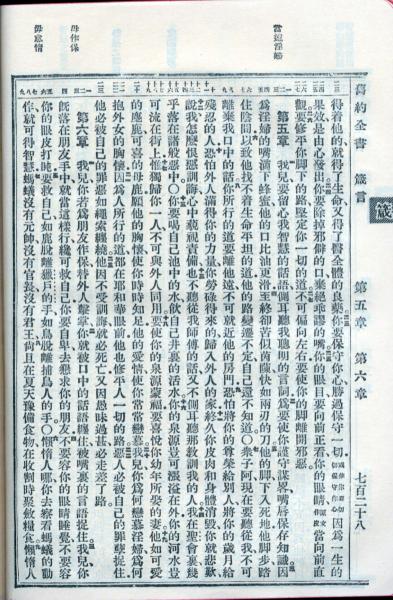 箴
舊約全書 箴言 第五章 第六章 七百二十八
當遠淫婦
毋作保
毋怠惰
得着他的就得了生命又得了醫全體的良藥你要保守你心勝過保守一切或作你要切切保守你心因為一生的
果效是由心發出你要除掉邪僻的口棄絕乖謬的嘴你的眼目要向前正看你的眼睛原文作皮當向前直
觀要修平你脚下的路堅定你一切的道不可偏向左右要使你的脚離開邪惡
第五章 我兒要留心我智慧的話語側耳聽我聰明的言詞為要使你謹守謀畧嘴唇保存知識因
為淫婦的嘴滴下蜂蜜他的口比油更滑至終卻苦似茵蔯快如兩刃的刀他的脚下入死地他脚步踏
住陰間以致他找不着生命平坦的道他的路變遷不定自己還不知道○衆子阿現在要聽從我不可
離棄我口中的話你所行的道要離他遠不可就近他的房門恐怕將你的尊榮給別人將你的歲月給
殘忍的人恐怕外人滿得你的力量你勞碌得來的歸入外人的家終久你皮肉和身體消毀你就悲歎
說我怎麼恨惡訓誨心中藐視責備也不聽從我師傅的話又不側耳聽那教訓我的人我在聖會裏幾
乎落在諸般惡中○你要喝自己池中的水飲自己井裏的活水你的泉源豈可漲溢在外你的河水豈
可流在街上惟獨歸你一人不可與外人同用要使你的泉源蒙福要喜悅你幼年所娶的妻他如可愛
的麀鹿可喜的母鹿願他的胸懷使你時時知足他的愛情使你常常戀慕我兒你為何戀慕淫婦為何
抱外女的胸懷因為人所行的道都在耶和華眼前他也修平人一切的路惡人必被自己的罪孽捉住
他必被自己的罪惡如繩索纏繞他因不受訓誨就必死亡又因愚昧過甚必走差了路
第六章 我兒你若為朋友作保替外人擊掌你就被口中的話語纏住被嘴裏的言語捉住我兒你
既落在朋友手中就當這樣行纔可救自己你要自卑去懇求你的朋友不要容你的眼睛睡覺不要容
你的眼皮打盹要救自己如鹿脫離獵戶的手如鳥脫離捕鳥人的手○懶惰人哪你去察看螞蟻的動
作就可得智慧螞蟻沒有元帥沒有官長沒有君王尚且在夏天豫備食物在收割時聚斂糧食懶惰人